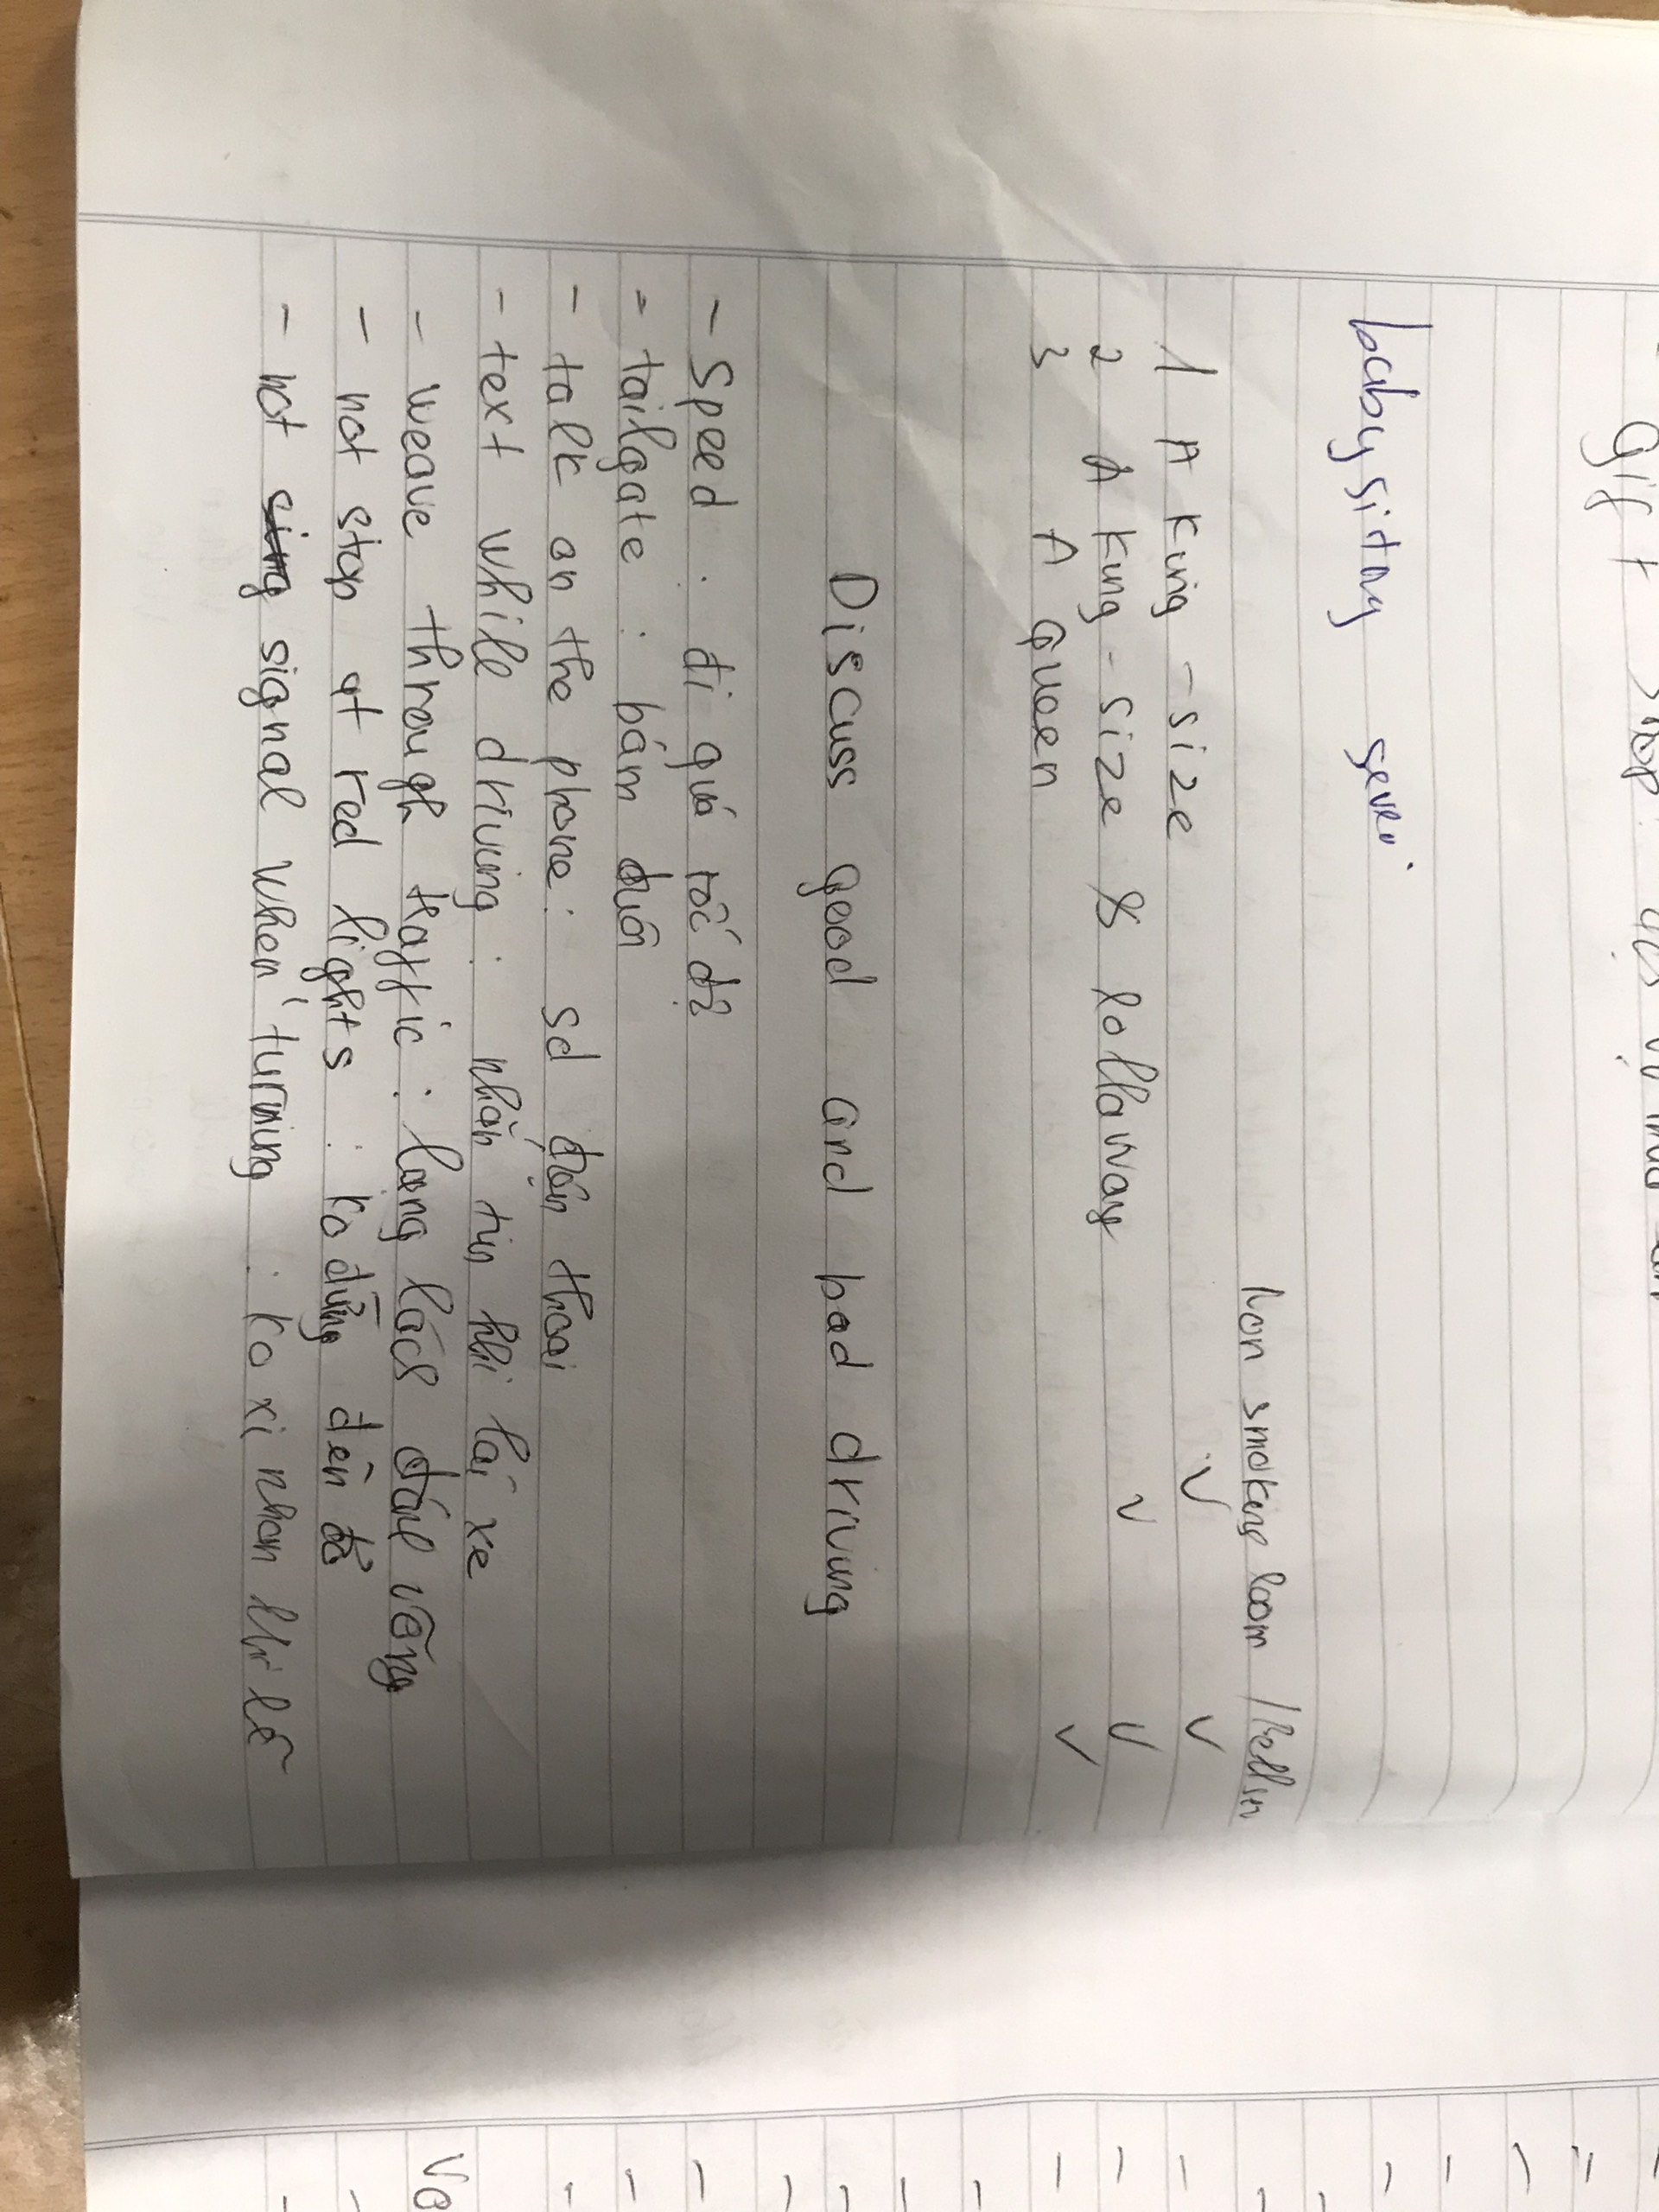 gift shop:
babysitng
Non smoking Room /Bellser
1 A King - size ✓ ✓
2 A King - size & Rollaway ✓ ✓
3 A Queen ✓
Discuss good and bad driving
- speed : đi quá tốc độ
- tailgate : bám đuôi
- talk on the phone: sd điện thoại
- text while driving : nhắn tin khi lái xe
- weave through traffic : lạng lách đánh võng
- not stop at red lights : ko dừng đèn đỏ
- not sing signal when turning : ko xi nhan khi rẽ